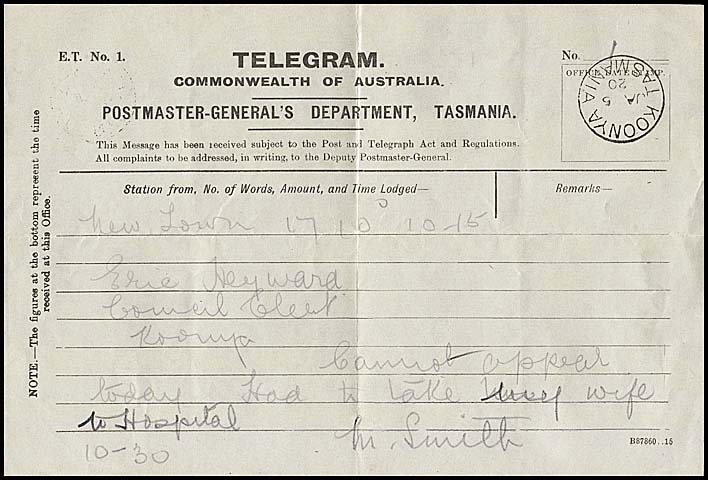 E.T. No. 1.
TELEGRAM.
No. 1
COMMONWEALTH OF AUSTRALIA.
POSTMASTER-GENERAL'S DEPARTMENT, TASMANIA.
OFFICE DATE STAMP.
KOONYA TASMANIA
5 JA 20
This Message has been received subject to the Post and Telegraph Act and Regulations.
All complaints to be addressed, in writing, to the Deputy Postmaster-General.
NOTE.—The figures at the bottom represent the time
received at this Office.
Station from, No. of Words, Amount, and Time Lodged—
Remarks—
New Town 17 10 D 10-15
Eric Heyward
Council Clerk
Koonya
Cannot appear
today Had to take wife
to Hospital
M. Smith
10-30
B87860..15